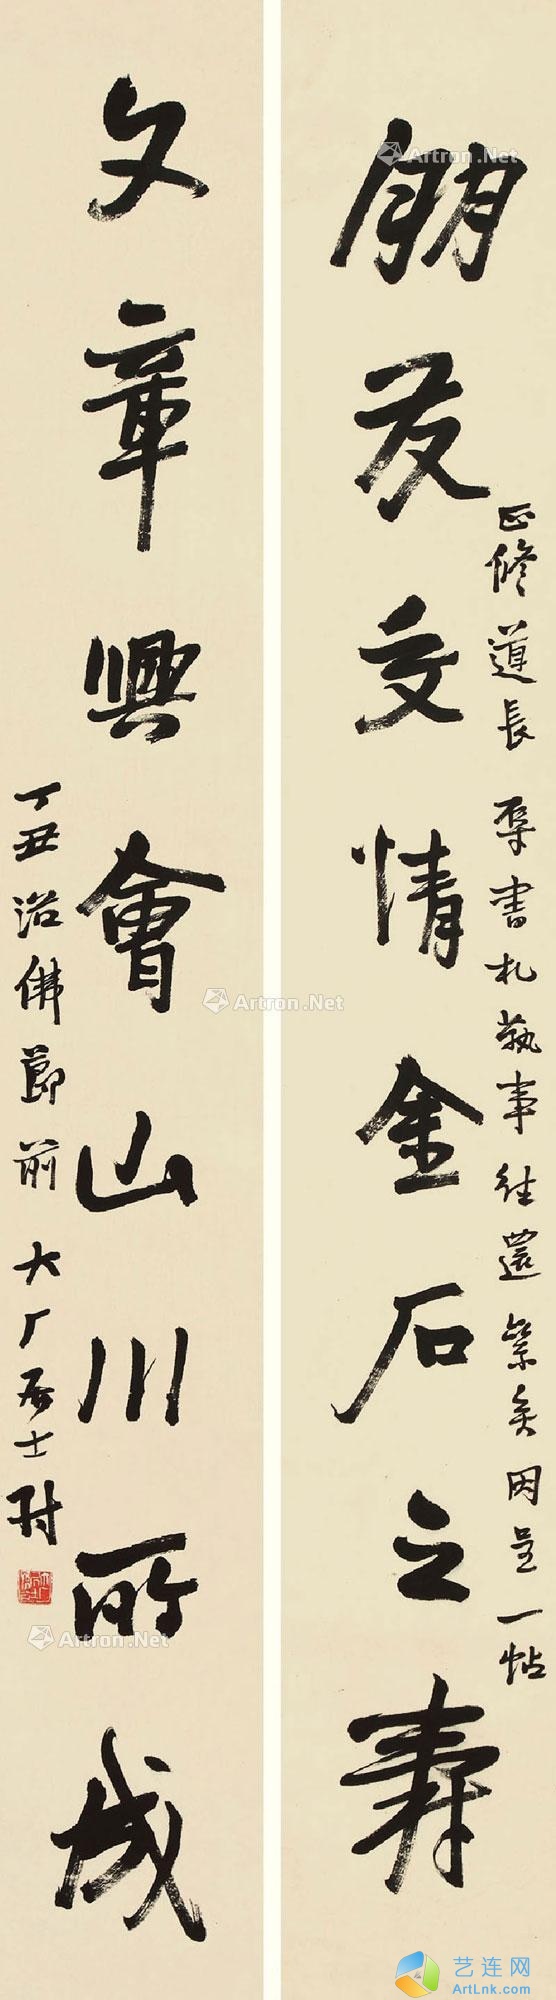 朋友交情金石之壽
正修道長 承書札執事往還 縈矣因呈一帖
文章興會山川所成
丁丑浴佛節前 大厂居士 對
Artron.Net
Artron.Net
Artron.Net
Artron.Net
Artron.Net
艺连网
ArtLnk.com